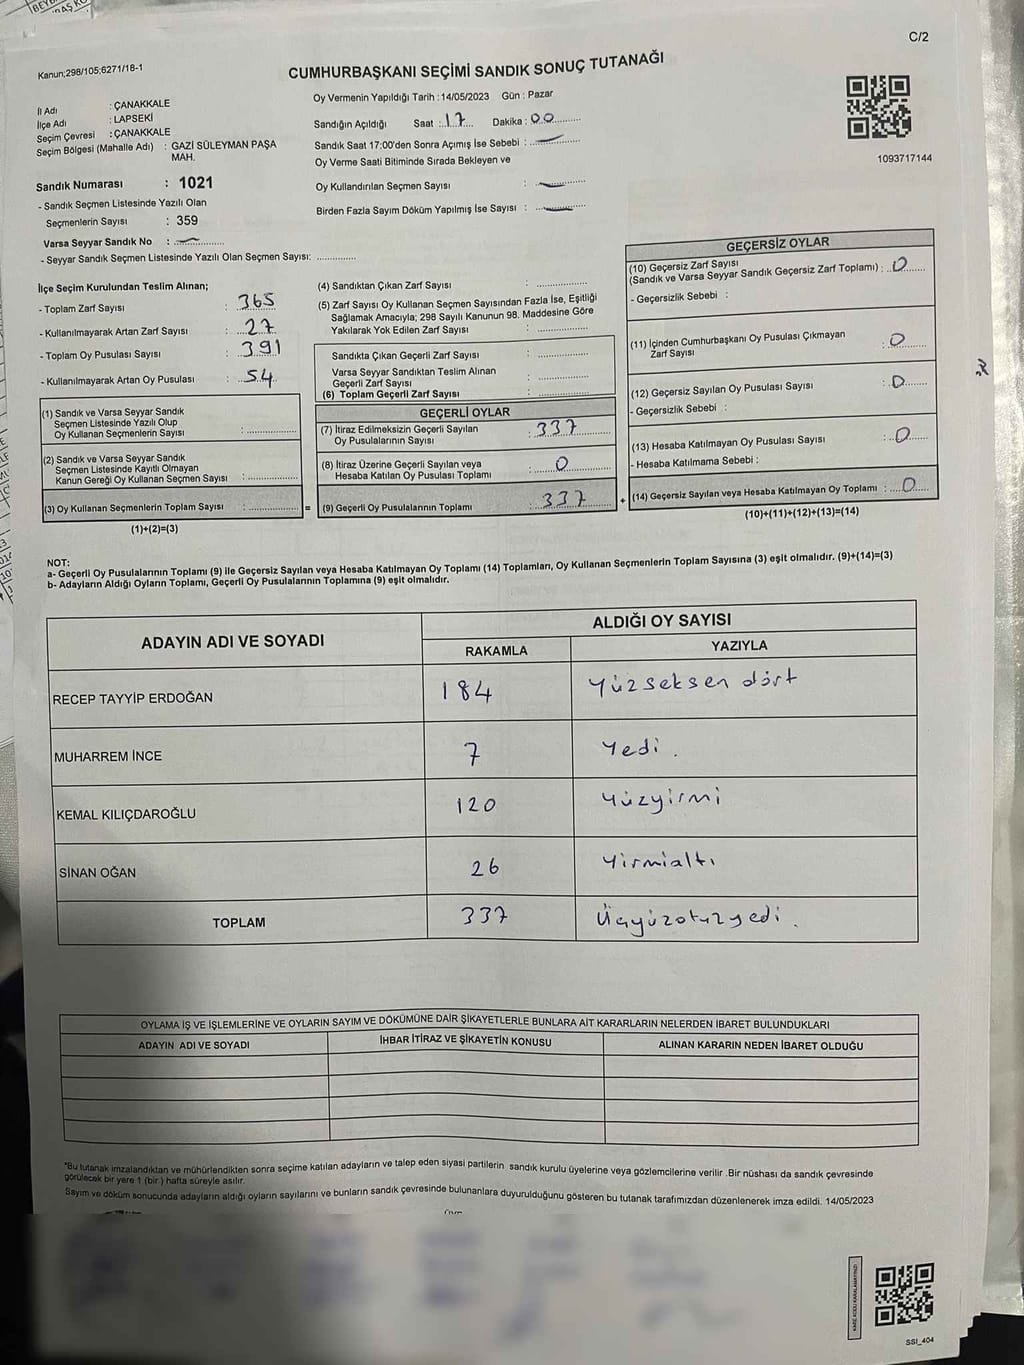 C/2
Kanun;298/105;6271/18-1
CUMHURBAŞKANI SEÇİMİ SANDIK SONUÇ TUTANAĞI
İl Adı : ÇANAKKALE
İlçe Adı : LAPSEKİ
Seçim Çevresi : ÇANAKKALE
Seçim Bölgesi (Mahalle Adı) : GAZİ SÜLEYMAN PAŞA
MAH.
Sandık Numarası : 1021
- Sandık Seçmen Listesinde Yazılı Olan
Seçmenlerin Sayısı : 359
Varsa Seyyar Sandık No :
- Seyyar Sandık Seçmen Listesinde Yazılı Olan Seçmen Sayısı:
Oy Vermenin Yapıldığı Tarih : 14/05/2023 Gün : Pazar
Sandığın Açıldığı Saat : 17 Dakika : 00
Sandık Saat 17:00'den Sonra Açımış İse Sebebi :
Oy Verme Saati Bitiminde Sırada Bekleyen ve
Oy Kullandırılan Seçmen Sayısı :
Birden Fazla Sayım Döküm Yapılmış İse Sayısı :
1093717144
İlçe Seçim Kurulundan Teslim Alınan;
- Toplam Zarf Sayısı : 365
- Kullanılmayarak Artan Zarf Sayısı : 27
- Toplam Oy Pusulası Sayısı : 391
- Kullanılmayarak Artan Oy Pusulası : 54
(1) Sandık ve Varsa Seyyar Sandık
Seçmen Listesinde Yazılı Olup
Oy Kullanan Seçmenlerin Sayısı :
(2) Sandık ve Varsa Seyyar Sandık
Seçmen Listesinde Kayıtlı Olmayan
Kanun Gereği Oy Kullanan Seçmen Sayısı :
(3) Oy Kullanan Seçmenlerin Toplam Sayısı : =
(1)+(2)=(3)
(4) Sandıktan Çıkan Zarf Sayısı :
(5) Zarf Sayısı Oy Kullanan Seçmen Sayısından Fazla İse, Eşitliği
Sağlamak Amacıyla; 298 Sayılı Kanunun 98. Maddesine Göre
Yakılarak Yok Edilen Zarf Sayısı :
Sandıkta Çıkan Geçerli Zarf Sayısı :
Varsa Seyyar Sandıktan Teslim Alınan
Geçerli Zarf Sayısı :
(6) Toplam Geçerli Zarf Sayısı :
GEÇERLİ OYLAR
(7) İtiraz Edilmeksizin Geçerli Sayılan
Oy Pusulalarının Sayısı : 337
(8) İtiraz Üzerine Geçerli Sayılan veya
Hesaba Katılan Oy Pusulası Toplamı : 0
(9) Geçerli Oy Pusulalarının Toplamı : 337 +
GEÇERSİZ OYLAR
(10) Geçersiz Zarf Sayısı
(Sandık ve Varsa Seyyar Sandık Geçersiz Zarf Toplamı) : 0
- Geçersizlik Sebebi :
(11) İçinden Cumhurbaşkanı Oy Pusulası Çıkmayan
Zarf Sayısı : 0
(12) Geçersiz Sayılan Oy Pusulası Sayısı : 0
- Geçersizlik Sebebi :
(13) Hesaba Katılmayan Oy Pusulası Sayısı : 0
- Hesaba Katılmama Sebebi :
(14) Geçersiz Sayılan veya Hesaba Katılmayan Oy Toplamı : 0
(10)+(11)+(12)+(13)=(14)
NOT:
a- Geçerli Oy Pusulalarının Toplamı (9) ile Geçersiz Sayılan veya Hesaba Katılmayan Oy Toplamı (14) Toplamları, Oy Kullanan Seçmenlerin Toplam Sayısına (3) eşit olmalıdır. (9)+(14)=(3)
b- Adayların Aldığı Oyların Toplamı, Geçerli Oy Pusulalarının Toplamına (9) eşit olmalıdır.
ADAYIN ADI VE SOYADI
ALDIĞI OY SAYISI
RAKAMLA YAZIYLA
RECEP TAYYİP ERDOĞAN 184 Yüzseksen dört
MUHARREM İNCE 7 Yedi .
KEMAL KILIÇDAROĞLU 120 Yüzyirmi
SİNAN OĞAN 26 Yirmialtı
TOPLAM 337 Üçyüzotuzyedi .
OYLAMA İŞ VE İŞLEMLERİNE VE OYLARIN SAYIM VE DÖKÜMÜNE DAİR ŞİKAYETLERLE BUNLARA AİT KARARLARIN NELERDEN İBARET BULUNDUKLARI
ADAYIN ADI VE SOYADI İHBAR İTİRAZ VE ŞİKAYETİN KONUSU ALINAN KARARIN NEDEN İBARET OLDUĞU
*Bu tutanak imzalandıktan ve mühürlendikten sonra seçime katılan adayların ve talep eden siyasi partilerin sandık kurulu üyelerine veya gözlemcilerine verilir .Bir nüshası da sandık çevresinde
görülecek bir yere 1 (bir ) hafta süreyle asılır.
Sayım ve döküm sonucunda adayların aldığı oyların sayılarını ve bunların sandık çevresinde bulunanlara duyurulduğunu gösteren bu tutanak tarafımızdan düzenlenerek imza edildi. 14/05/2023
SSI_404